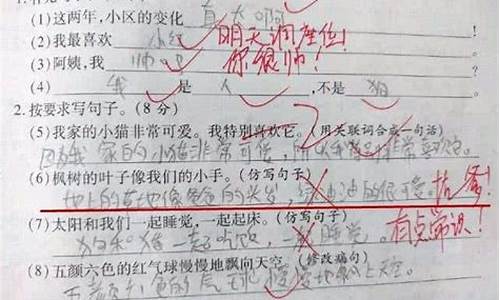 (1)这两年,小区的变化 真大啊
(2)我最喜欢 小红 明天调座位!
(3)阿姨,我 帅吗 你很帅!
(4) 我 是 人 ,不是 狗
2.按要求写句子。(8分)
(5)我家的小猫非常可爱。我特别喜欢它。(用关联词合成一句话)
因为我家的小猫非常可爱,所以我 非常喜欢它。
(6)枫树的叶子像我们的小手。(仿写句子)
地上的草地像爸爸的头发,绿油油的很可爱。
(7)太阳和我们一起睡觉,一起起床。(仿写句子) 有点常识!
狗和猪一起吃饭,一起睡觉。
(8)五颜六色的红气球慢慢地飘向天空。(修改病句)
五颜六色的气球慢慢地飘上天空。